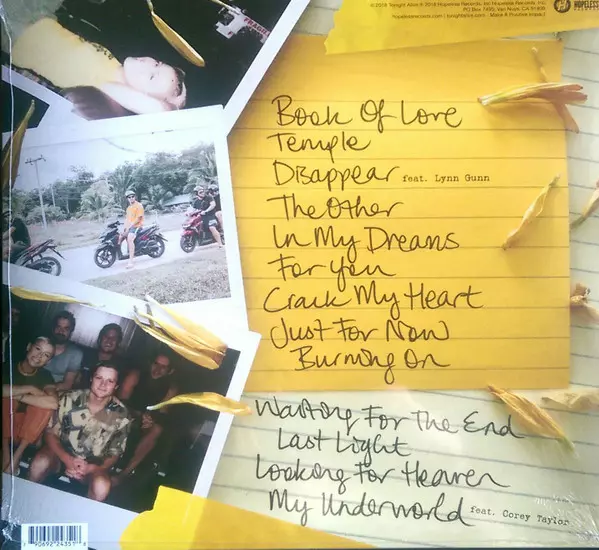 ℗ 2018 Tonight Alive © 2018 Hopeless Records, Inc Hopeless Records, Inc.
PO Box 7495, Van Nuys, CA 91409
hopelessrecords.com | tonightalive.com
HOPELESS
FRAGILE
Book Of Love
Temple
Disappear feat. Lynn Gunn
The Other
In My Dreams
For You
Crack My Heart
Just For Now
Burning On
Waiting For The End
Last Light
Looking For Heaven
My Underworld feat. Corey Taylor
90692 24351